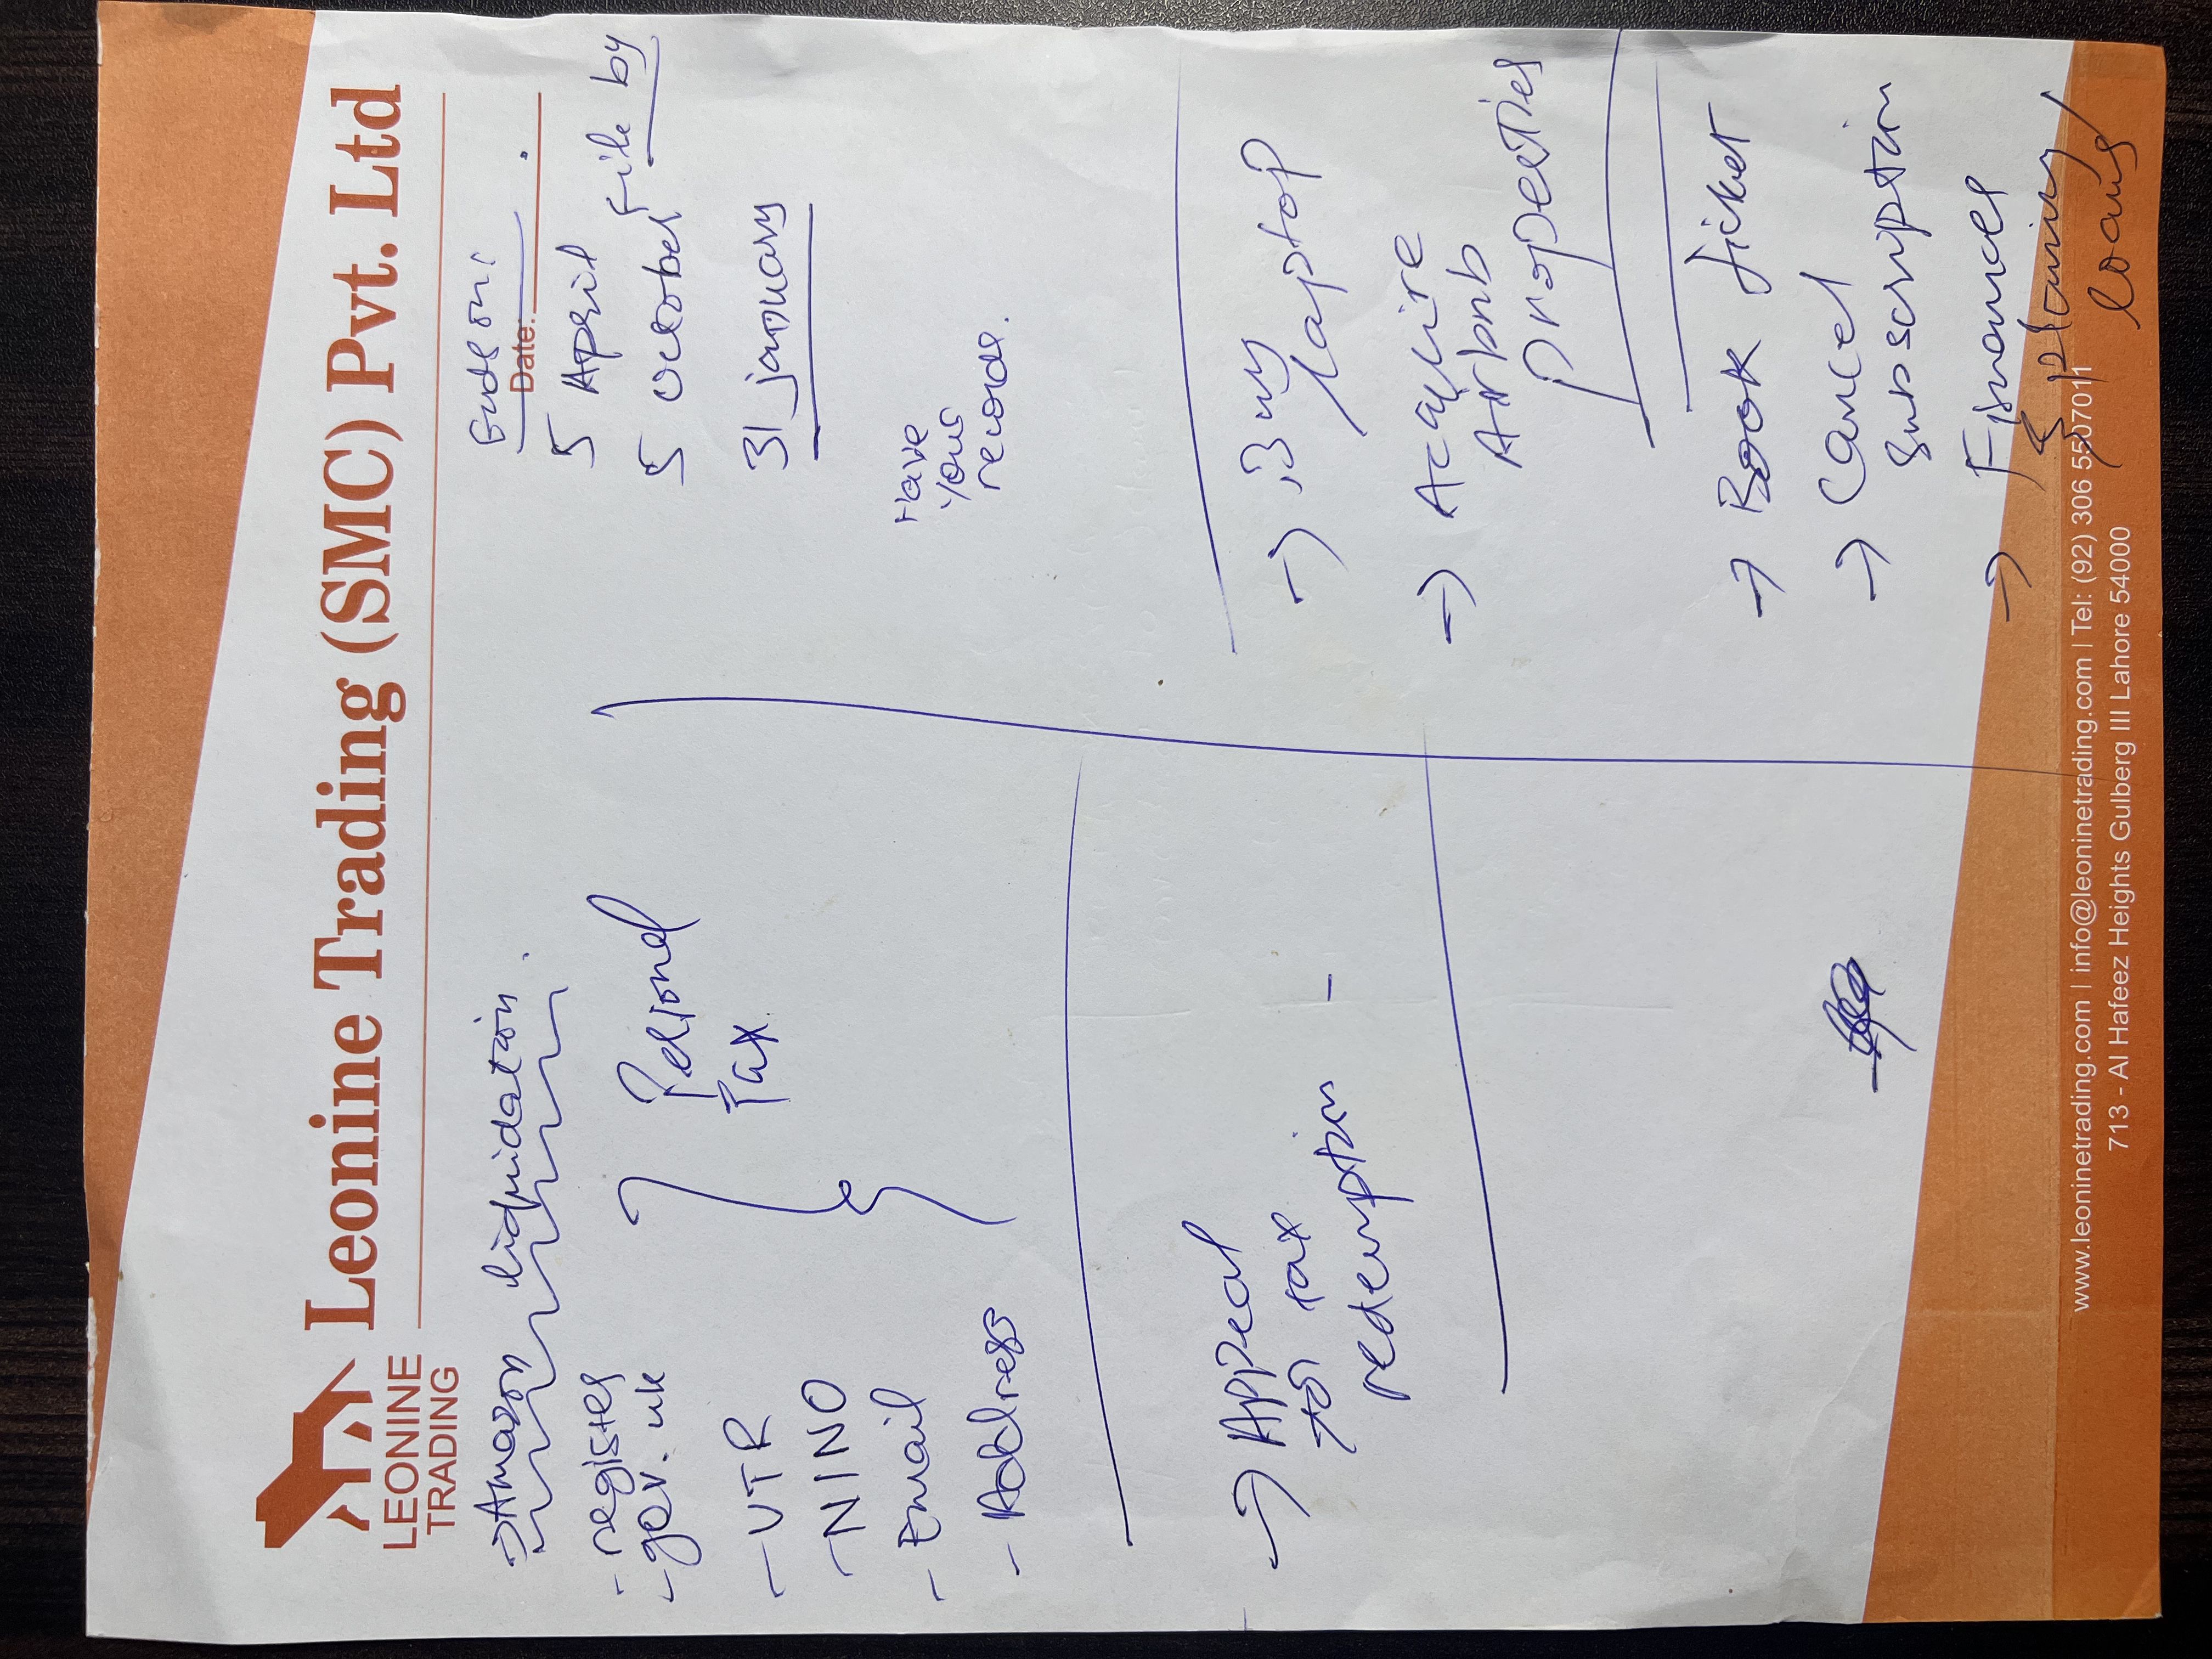 LEONINE
TRADING
Leonine Trading (SMC) Pvt. Ltd
Date:
Amazon liquidation.
- register
- gov.uk
- UTR
- NINO
- Email
- Address
Personal
Tax
→ Appeal
for tax
redemption
5 April
5 October File by
31 january
Have
your
records.
→ Buy
laptop
→ Acquire
Airbnb
properties
→ Book ticket
→ Cancel
Subscription
→ Finances
& planing
loans
www.leoninetrading.com | info@leoninetrading.com | Tel: (92) 306 5507011
713 - Al Hafeez Heights Gulberg III Lahore 54000